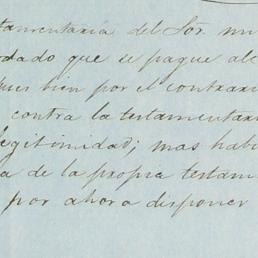 tamentaría del Sor. mu
dado que se pague al
ues bien por el contrari
contra la testamentari
legitimidad; mas habi
a de la propia testam
por ahora disponer